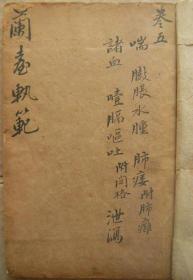 卷五
喘 臌脹水腫 肺痿附肺癰
諸血 噎膈嘔吐附関格 泄瀉
蘭臺軌範